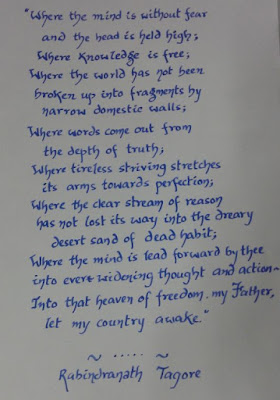 "Where the mind is without fear
and the head is held high;
Where knowledge is free;
Where the world has not been
broken up into fragments by
narrow domestic walls;
Where words come out from
the depth of truth;
Where tireless striving stretches
its arms towards perfection;
Where the clear stream of reason
has not lost its way into the dreary
desert sand of dead habit;
Where the mind is lead forward by thee
into ever-widening thought and action—
Into that heaven of freedom, my Father,
let my country awake."
~ ..... ~
Rabindranath Tagore